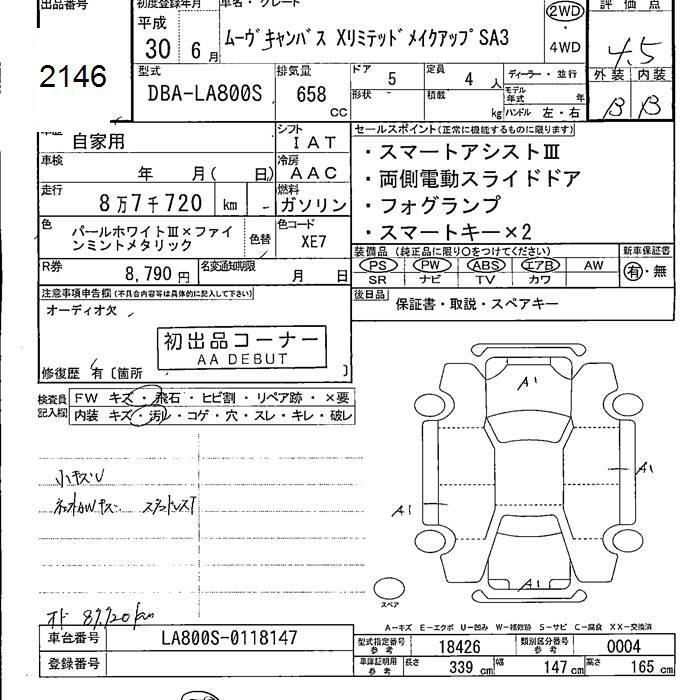 出品番号 初度登録年月 車名・グレード 評価点
平成 30年 6月 ムーヴキャンバス XリミテッドメイクアップSA3 2WD・4WD 4.5
2146
型式 排気量 ドア 5 定員 4人 ディーラー・並行 外装 内装
DBA-LA800S 658cc 形状 積載 kg モデル年式 年 ハンドル 左・右 B B
車歴 自家用 シフト IAT セールスポイント(正常に機能するものに限ります)
車検 年 月( 日) 冷房 AAC ・スマートアシストⅢ
走行 8万7千720 km 燃料 ガソリン ・両側電動スライドドア
・フォグランプ
色 パールホワイトⅢ×ファインミントメタリック 色替 色コード XE7 ・スマートキー×2
装備品(純正品に限り○をつけてください) 新車保証書
R券 8,790円 名変通知期限 月 日 PS PW ABS エアB AW 有・無
SR ナビ TV カワ
注意事項申告欄(不具合内容等は具体的に記入して下さい) 後日品 保証書・取説・スペアキー
オーディオ欠
初出品コーナー
AA DEBUT
修復歴 有〔箇所 〕
検査員記入欄 FW キズ・飛石・ヒビ割・リペア跡・×要
内装 キズ・汚れ・コゲ・穴・スレ・キレ・破レ
A1
小キズU
A1
A1
A1
スペア
87,720km
A-キズ E-エクボ U-凹み W-補修跡 S-サビ C-腐食 XX-交換済
車台番号 LA800S-0118147 型式指定番号 参考 18426 類別区分番号 参考 0004
登録番号 車庫証明用 参考 長さ 339cm 幅 147cm 高さ 165cm